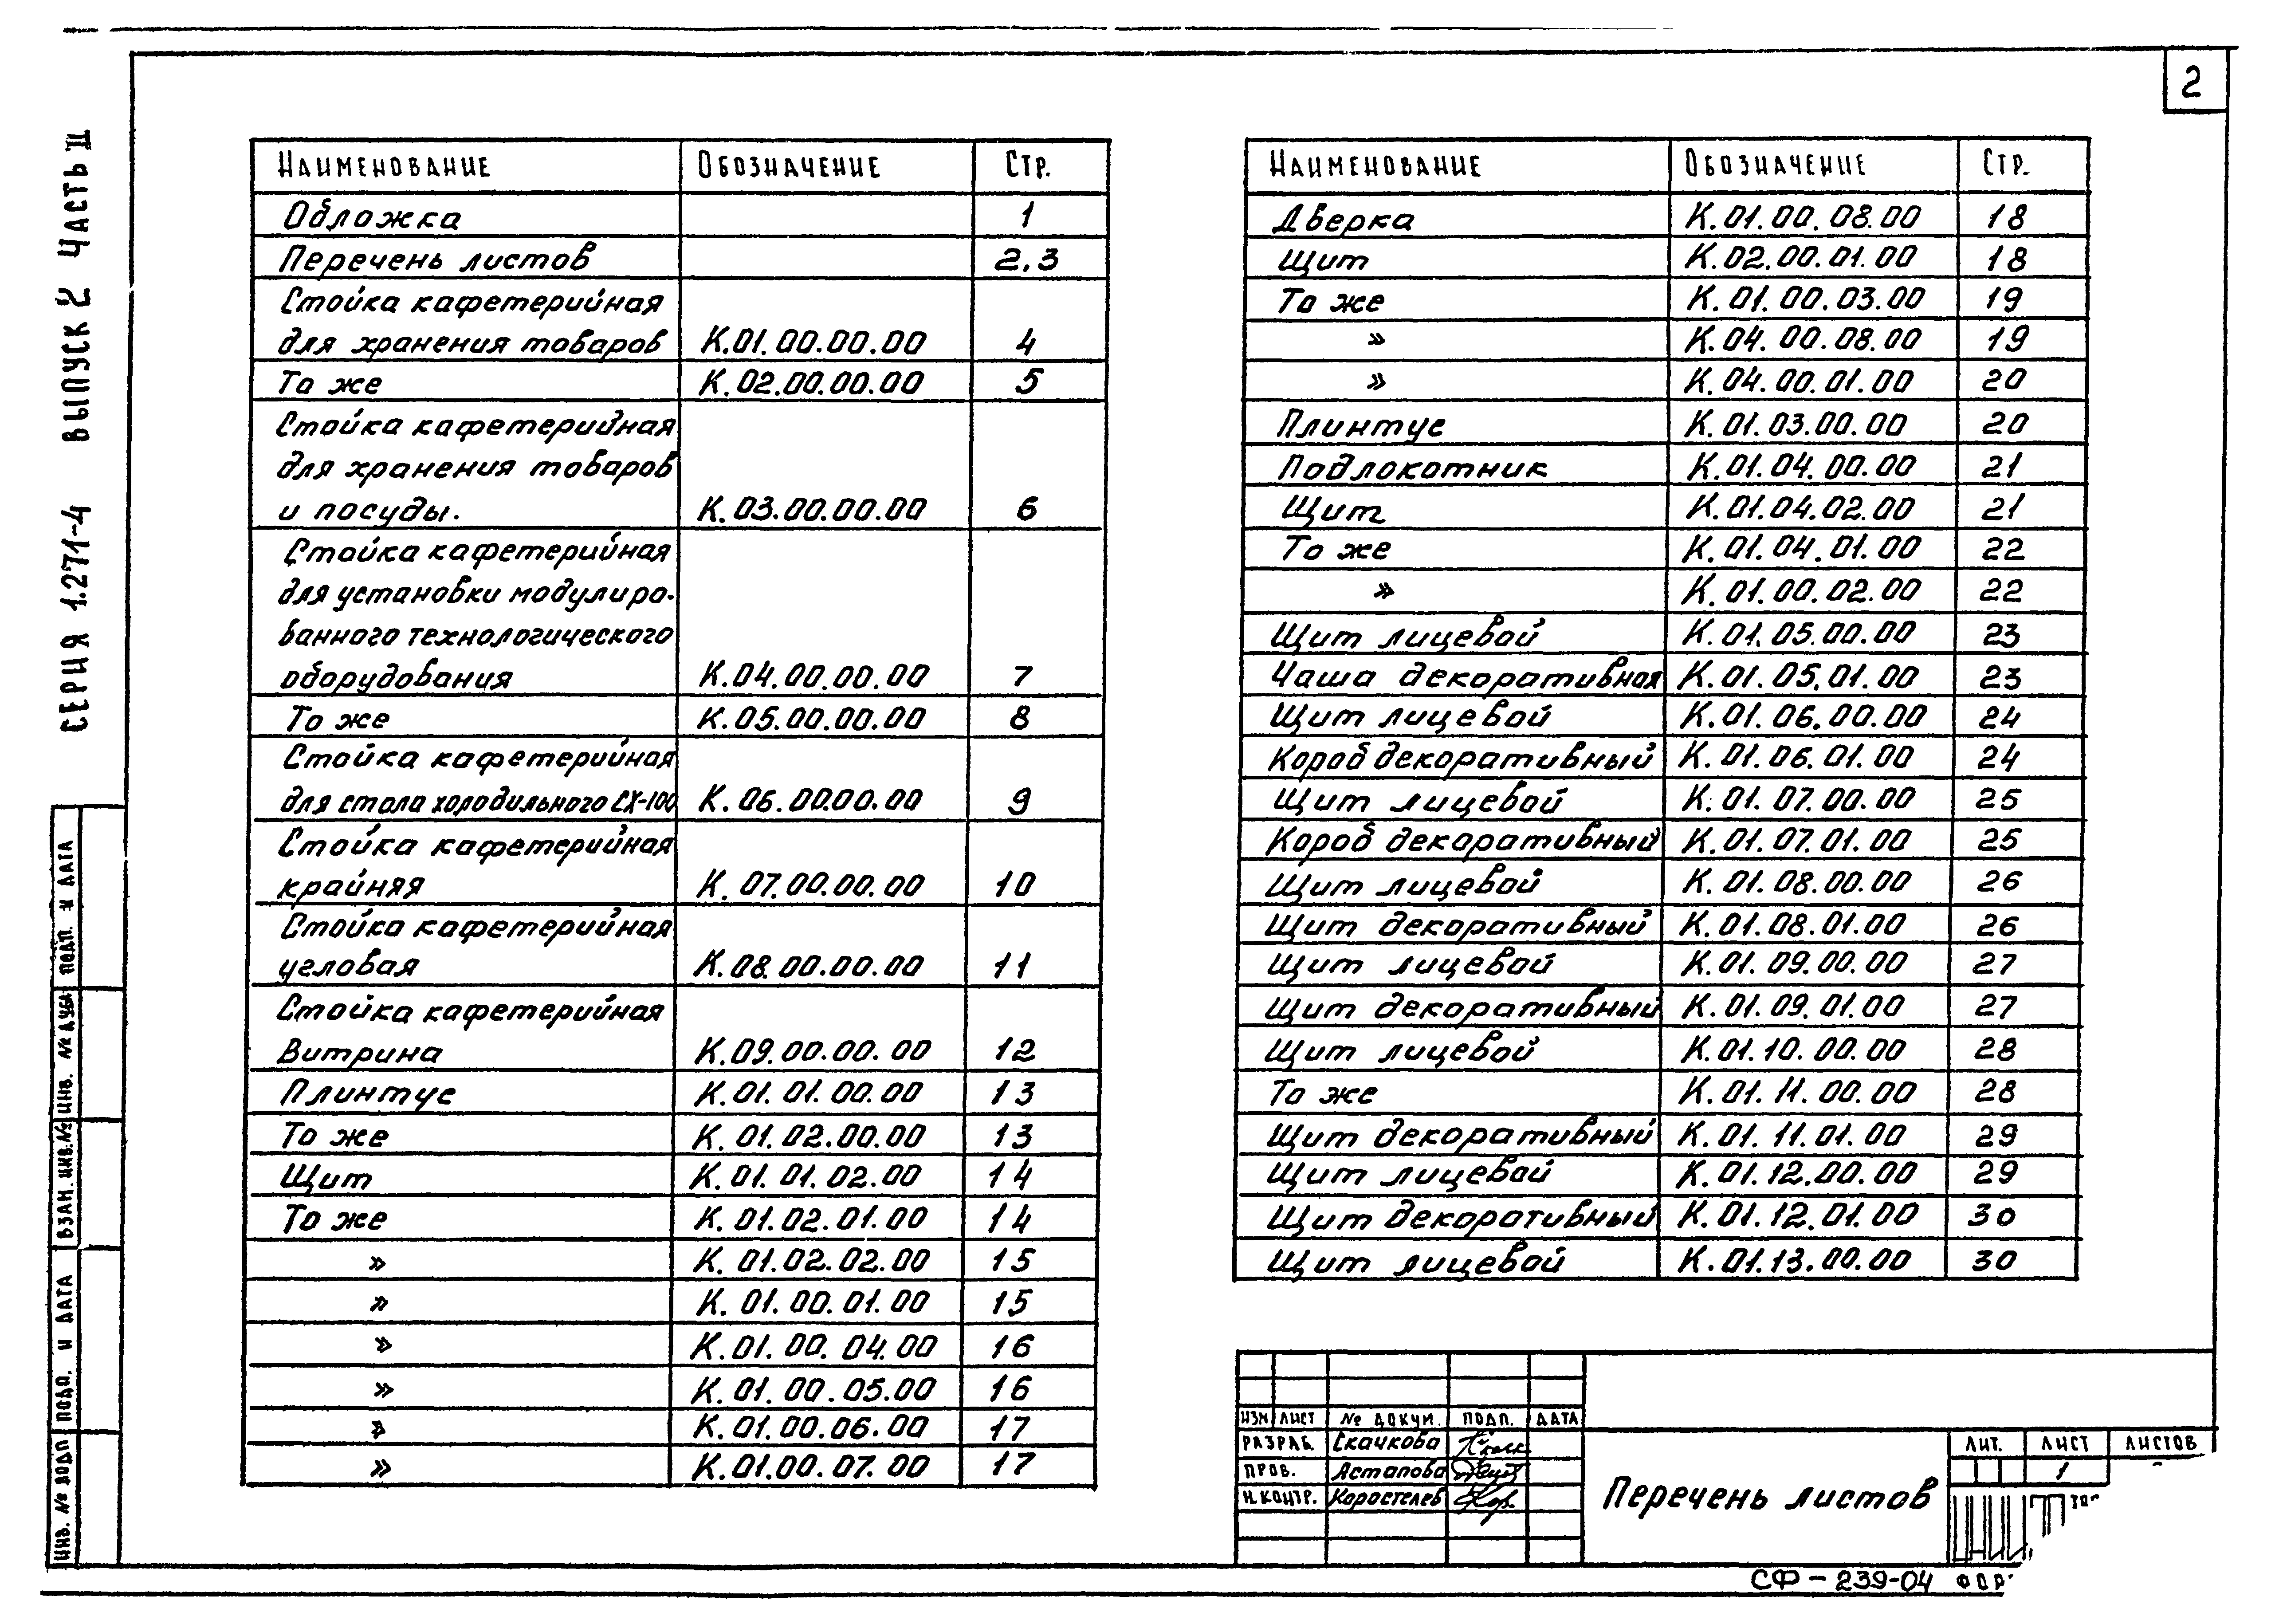 2
СЕРИЯ 1.271-4 ВЫПУСК 2 ЧАСТЬ II
НАИМЕНОВАНИЕ ОБОЗНАЧЕНИЕ СТР.
Обложка 1
Перечень листов 2.3
Стойка кафетерийная
для хранения товаров К.01.00.00.00 4
То же К.02.00.00.00 5
Стойка кафетерийная
для хранения товаров
и посуды. К.03.00.00.00 6
Стойка кафетерийная
для установки модулиро-
ванного технологического
оборудования К.04.00.00.00 7
То же К.05.00.00.00 8
Стойка кафетерийная
для стола холодильного СХ-100 К.06.00.00.00 9
Стойка кафетерийная
крайняя К.07.00.00.00 10
Стойка кафетерийная
угловая К.08.00.00.00 11
Стойка кафетерийная
Витрина К.09.00.00.00 12
Плинтус К.01.01.00.00 13
То же К.01.02.00.00 13
Щит К.01.01.02.00 14
То же К.01.02.01.00 14
» К.01.02.02.00 15
» К.01.00.01.00 15
» К.01.00.04.00 16
» К.01.00.05.00 16
» К.01.00.06.00 17
» К.01.00.07.00 17
НАИМЕНОВАНИЕ ОБОЗНАЧЕНИЕ СТР.
Дверка К.01.00.08.00 18
Щит К.02.00.01.00 18
То же К.01.00.03.00 19
» К.04.00.08.00 19
» К.04.00.01.00 20
Плинтус К.01.03.00.00 20
Подлокотник К.01.04.00.00 21
Щит К.01.04.02.00 21
То же К.01.04.01.00 22
» К.01.00.02.00 22
Щит лицевой К.01.05.00.00 23
Чаша декоративная К.01.05.01.00 23
Щит лицевой К.01.06.00.00 24
Короб декоративный К.01.06.01.00 24
Щит лицевой К.01.07.00.00 25
Короб декоративный К.01.07.01.00 25
Щит лицевой К.01.08.00.00 26
Щит декоративный К.01.08.01.00 26
Щит лицевой К.01.09.00.00 27
Щит декоративный К.01.09.01.00 27
Щит лицевой К.01.10.00.00 28
То же К.01.11.00.00 28
Щит декоративный К.01.11.01.00 29
Щит лицевой К.01.12.00.00 29
Щит декоративный К.01.12.01.00 30
Щит лицевой К.01.13.00.00 30
ИНВ. № ПОДЛ ПОДП. И ДАТА ВЗАМ. ИНВ. № ИНВ. № ДУБЛ ПОДП. И ДАТА
ИЗМ ЛИСТ № ДОКУМ. ПОДП. ДАТА
РАЗРАБ. Скачкова
ПРОВ. Астапова
Н.КОНТР. Коростелев
Перечень листов
ЛИТ. ЛИСТ ЛИСТОВ
1
СФ-239-04